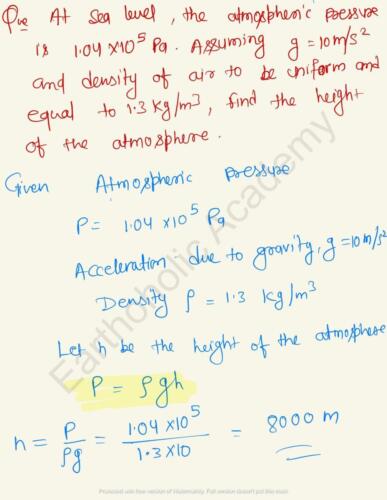 Que At Sea level, the atmospheric pressure
is 1.04 × 10⁵ Pa. Assuming g = 10 m/s²
and density of air to be uniform and
equal to 1.3 Kg/m³, find the height
of the atmosphere.
Given Atmospheric pressure
P = 1.04 × 10⁵ Pa
Acceleration due to gravity, g = 10 m/s²
Density ρ = 1.3 Kg/m³
Let h be the height of the atmosphere
P = ρgh
h = P/ρg = 1.04 × 10⁵/1.3 × 10 = 8000 m
Earthoholic Academy
Protected with free version of Watermarkly. Full version doesn't put this mark.